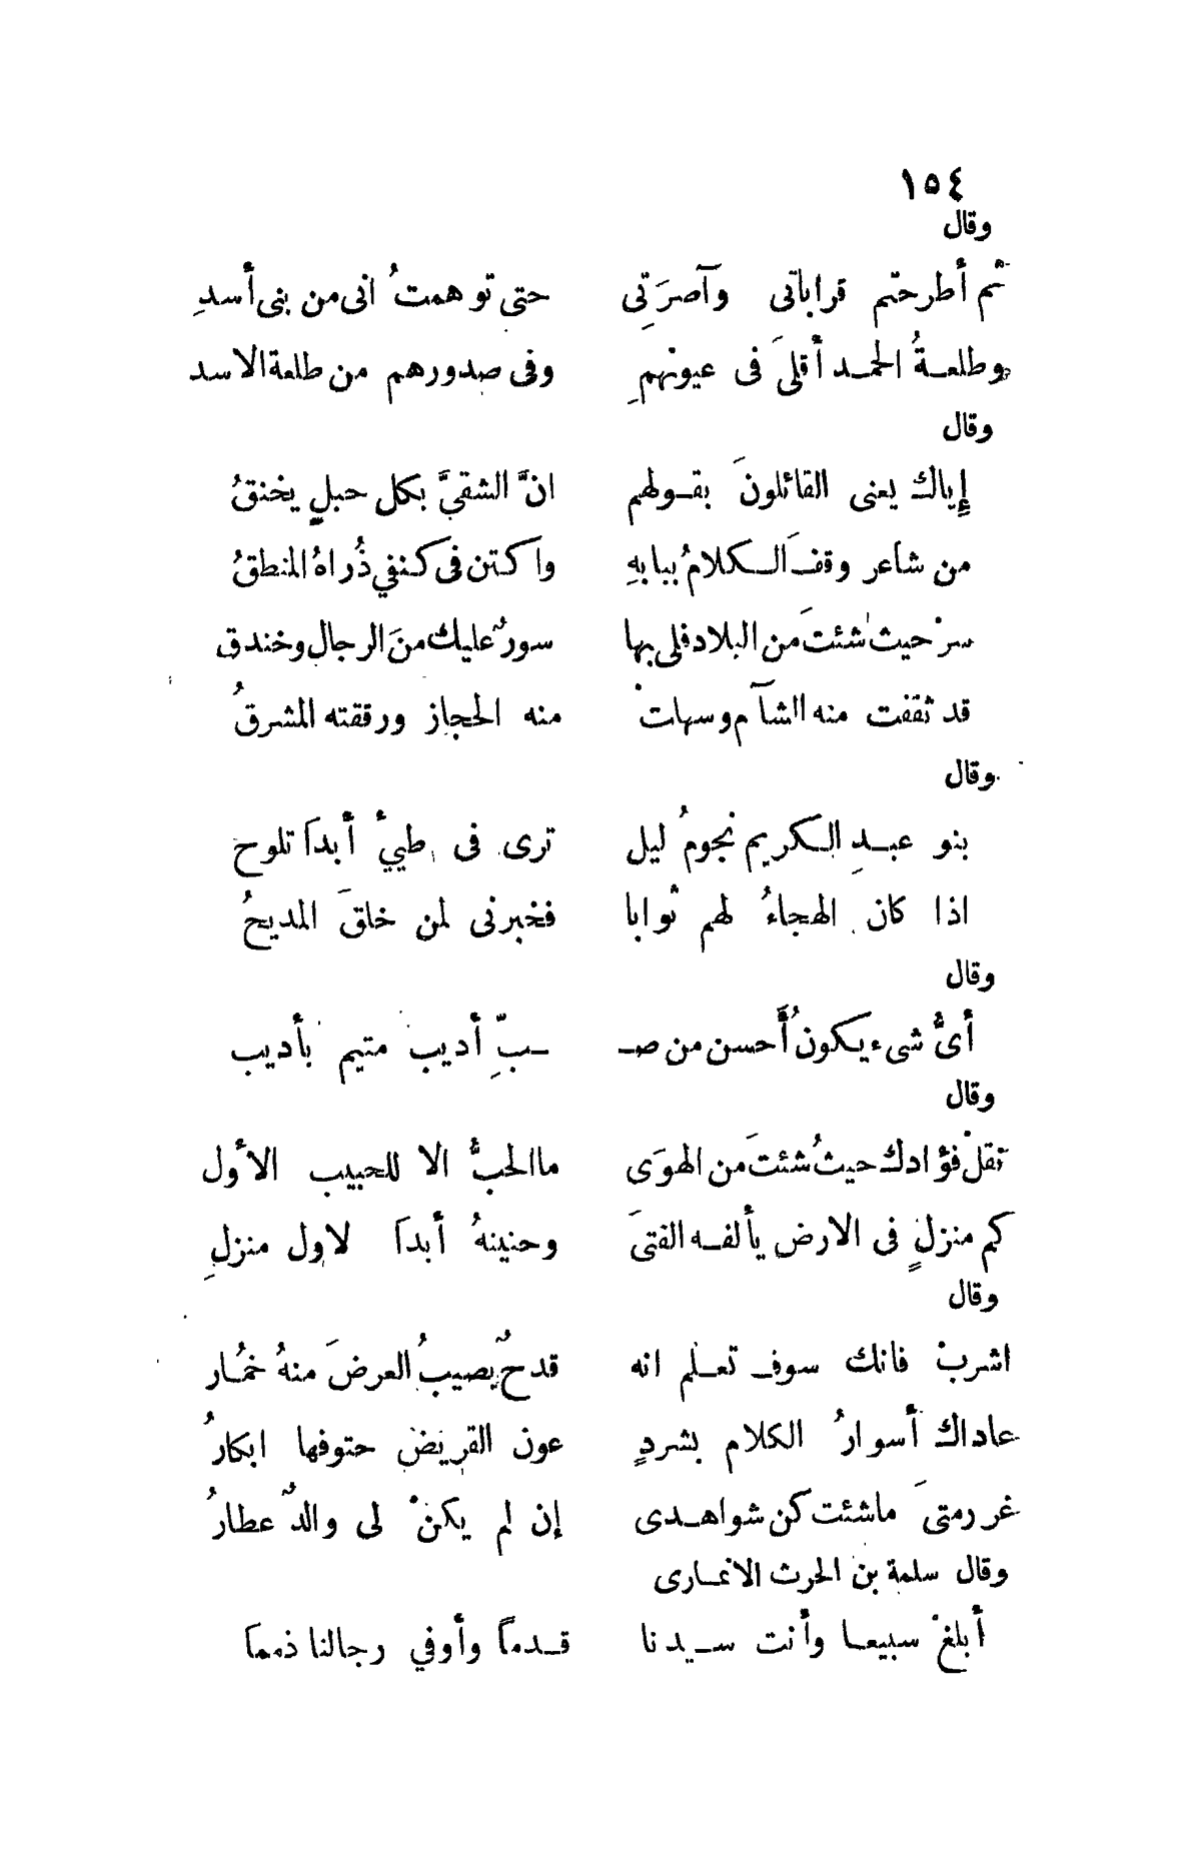 ١٥٤
وقال
ثم أطرحتم قراباتى وآصرَتِى حتى توهمتُ انى من بنى أسدِ
وطلعــةُ الحمــد أقلىَ فى عيونهمِ وفى صدورهم من طلعة الاسد
وقال
إياك يعنى القائلونَ بقــولهم انَّ الشقيَّ بكل حبلٍ يخنقُ
من شاعر وقفَ الــكلامُ ببابهِ واكتن فى كنفي ذُراهُ المنطقُ
سرْ حيث شئتَ من البلاد فلى بها سورٌ عليك منَ الرجال وخندق
قد ثقفت منه الشآم وسهلتْ منه الحجاز ورققته المشرقُ
وقال
بنو عبــدِ الــكريم نجومُ ليل ترى فى طييءٍ أبداً تلوح
اذا كان الهجاءُ لهم ثوابا فخبرنى لمن خلقَ المديحُ
وقال
أىُّ شىء يكونُ أحسن من صــ ــبِّ أديب متيم بأديب
وقال
نقلْ فؤادك حيثُ شئتَ من الهوَى ماالحبُّ الا للحبيب الأول
كم منزلٍ فى الارض يألفــه الفتىَ وحنينهُ أبداً لاول منزلِ
وقال
اشربْ فانك سوف تعــلم انه قدحٌ يصيبُ العرضَ منهُ خمُــار
عاداك أسوارُ الكلام بشردٍ عون القريض حتوفها ابكارُ
غرر متىَ ماشئت كن شواهــدى إن لم يكنْ لى والدٌ عطارُ
وقال سلمة بن الحرث الانمــارى
أبلغْ سبيعــا وأنت ســيدنا قــدماً وأوفي رجالنا ذمماَ